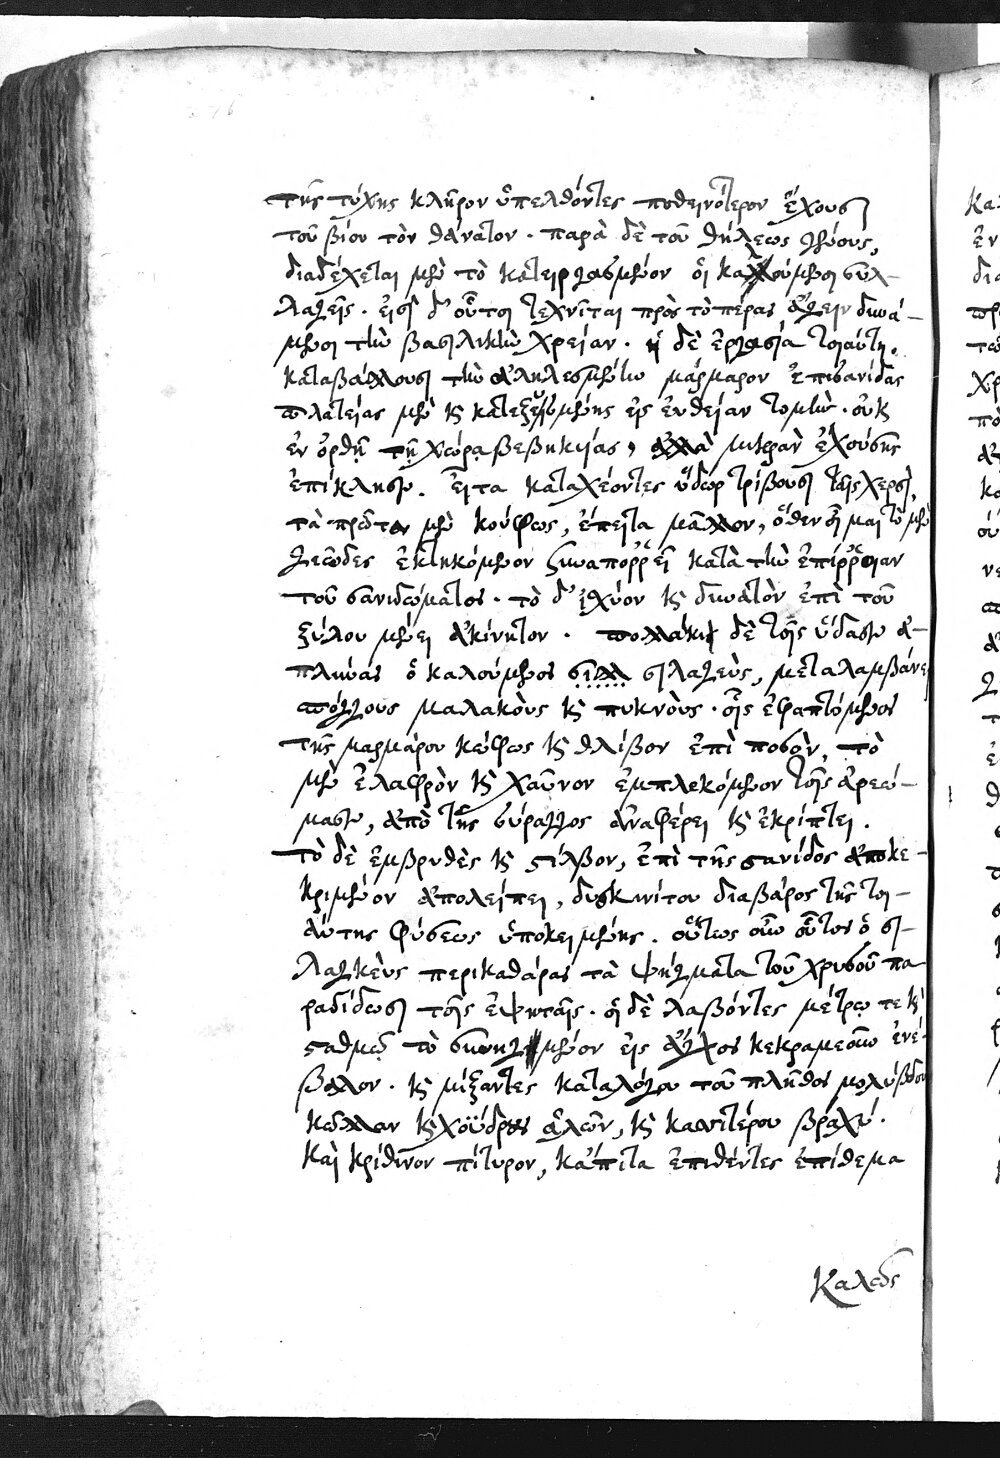 τῆς τύχης κλῆρον ὑπελθόντες ποθεινότερον ἔχουσι
τοῦ βίου τὸν θάνατον. παρὰ δὲ τοῦ θήλεως γένους,
διαδέχεται μὲν τὸ κατειργασμένον οἱ καλούμενοι σελ-
λαγεῖς. εἰσὶ δ' οὗτοι τεχνῖται πρὸς τὸ πέρας ἄγειν δυνά-
μενοι τὴν βασιλικὴν χρείαν. ἡ δὲ ἐργασία τοιαύτη.
καταβάλλουσι τὴν ἀληλεσμένην μάρμαρον ἐπὶ σανίδας
πλατείας μὲν καὶ κατεξεσμένης εἰς εὐθεῖαν τομὴν. οὐκ
ἐν ὀρθῇ τῇ χώρᾳ βεβηκυίας, ἀλλὰ μικρὰν ἐχούσης
ἐπίκλησιν. εἶτα καταχέοντες ὕδωρ τρίβουσι ταῖς χερσὶ,
τὰ πρῶτα μὲν κούφως, ἔπειτα μᾶλλον, ὅθεν οἶμαι τὸ μὲν
γεῶδες ἐκτηκόμενον συναπορρεῖ κατὰ τὴν ἐπίρρειαν
τοῦ σανιδώματος. τὸ δ' ἰσχύον καὶ δυνατὸν ἐπὶ τοῦ
ξύλου μένει ἀκίνητον. πολλάκις δὲ τοῖς ὕδασιν ἀ-
πλύνας ὁ καλούμενος σελλ σηλαγεὺς, μεταλαμβάνει
σπόγγους μαλακοὺς καὶ πυκνοὺς. οἷς ἐφαπτόμενος
τῆς μαρμάρου κούφως καὶ θλίβων ἐπὶ ποσὸν, τὸ
μὲν ἐλαφρὸν καὶ χαῦνον ἐμπλεκόμενον τοῖς ἀρεώ-
μασιν, ἀπὸ τῆς σύραγγος ἀναφέρει καὶ ἐκρίπτει.
τὸ δὲ ἐμβριθὲς καὶ στίλβον, ἐπὶ τῆς σανίδος ἀποκε-
κριμένον ἀπολείπει, δυσκινίτου διαβάρος τῆς τοι-
αύτης φύσεως ὑποκειμένης. οὕτως οὖν οὗτος ὁ ση-
λαγκεὺς περικαθάρας τὰ ψήγματα τοῦ χρυσοῦ πα-
ραδίδωσι τοῖς ἑψηταῖς. οἱ δὲ λαβόντες μέτρῳ τε καὶ
σταθμῷ τὸ συνηγμένον εἰς ἄγγος κεκραμεοῦν ἐνέ-
βαλλον. καὶ μίξαντες κατὰ λόγον τοῦ πλήθος μολύβδου
κῶλλαν καὶ χόνδρους ἁλῶν, καὶ κασιτέρου βραχύ.
καὶ κρίθινον πίτυρον, κἄπιτα ἐπιθέντες ἐπίθεμα
καλῶς